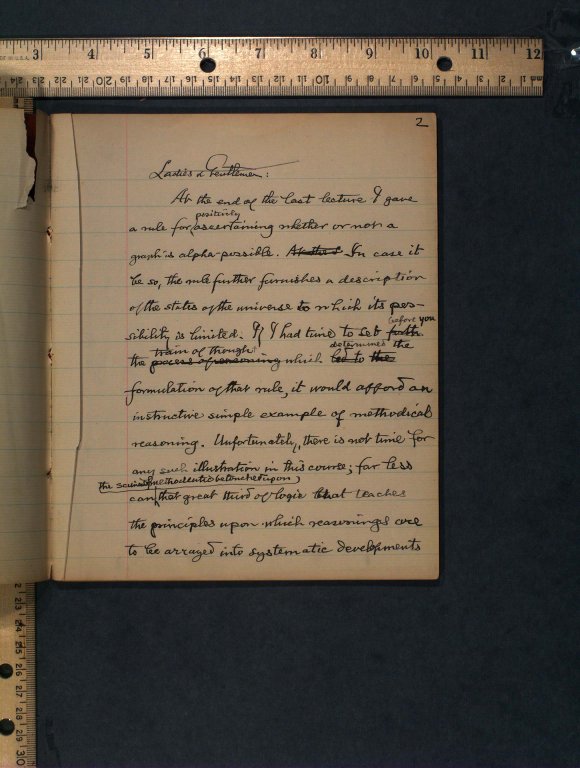 2
Ladies & Gentlemen:
At the end of the last lecture I gave
positively
a rule for ascertaining whether or not a
graph is alpha-possible. At the e In case it
be so, the rule further furnishes a description
of the states of the universe to which its pos-
sibility is limited. If I had time to set forth
before you
train of thought determines the
the process of reasoning which led to the
formulation of that rule, it would afford an
instructive simple example of methodical
reasoning. Unfortunately, there is not time for
any such illustration in this course; far less
the science of methodeutic be touched upon,
can that great third of logic that teaches
the principles upon which reasonings are
to be arrayed into systematic developments
3 4 5 6 7 8 9 10 11 12